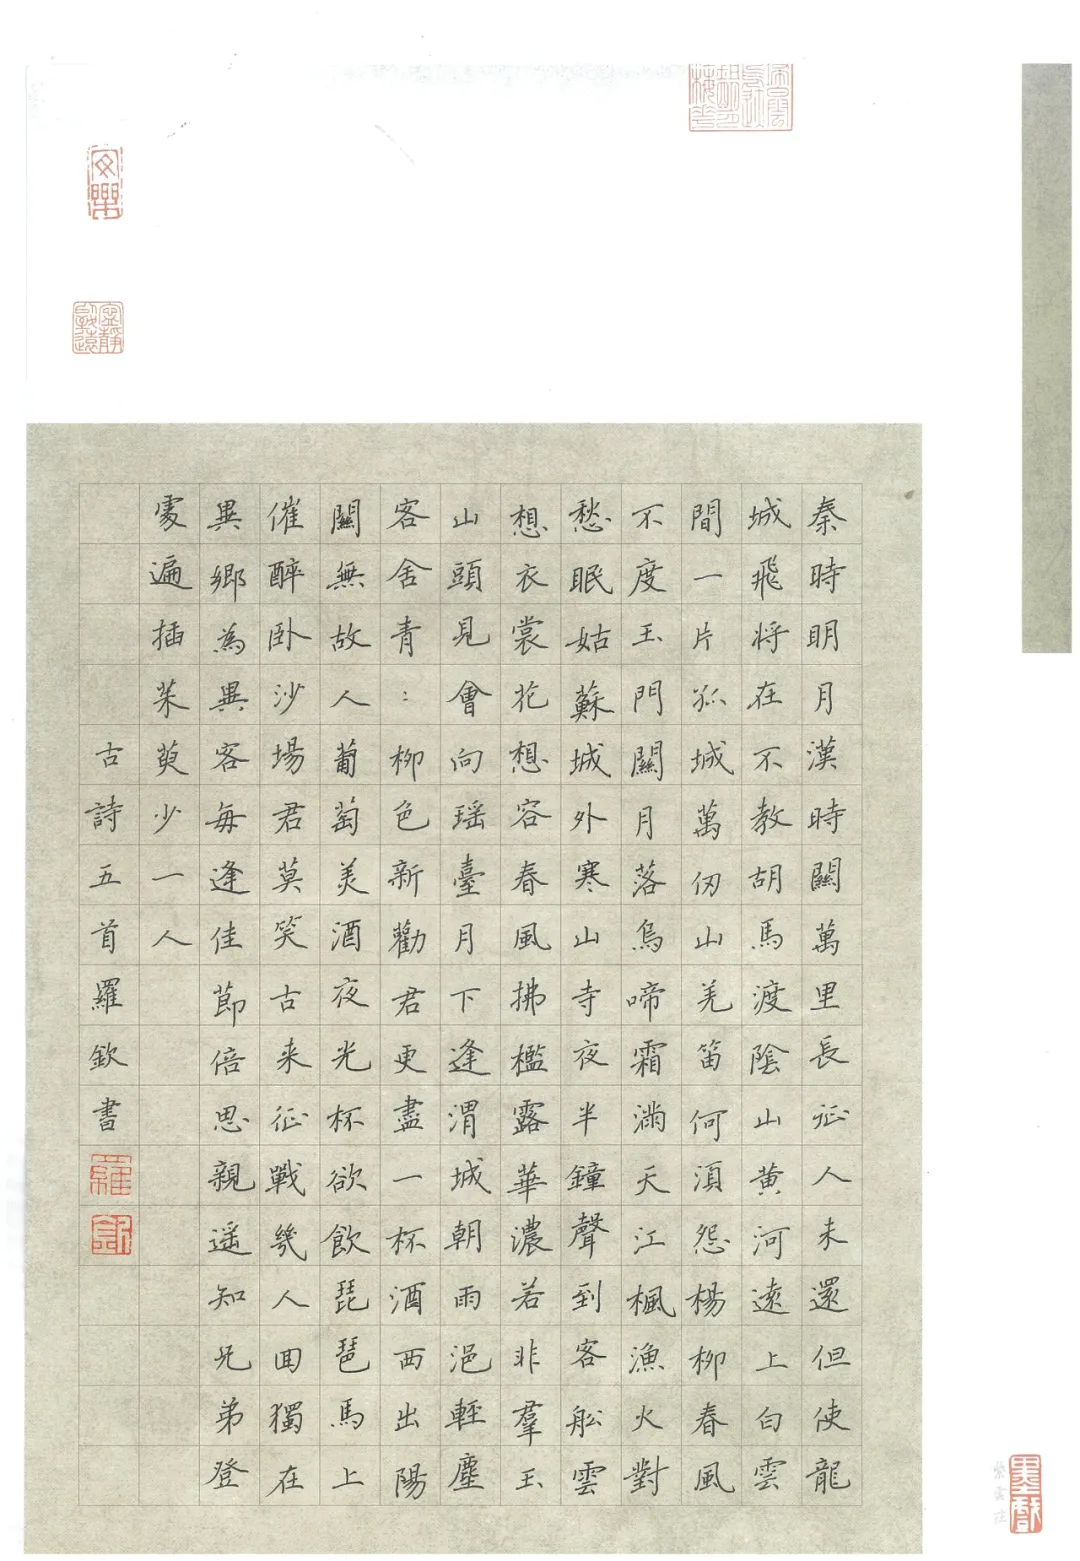 秦時明月漢時關萬里長征人未還但使龍
城飛將在不教胡馬渡陰山黃河遠上白雲
間一片孤城萬仞山羌笛何須怨楊柳春風
不度玉門關月落烏啼霜滿天江楓漁火對
愁眠姑蘇城外寒山寺夜半鐘聲到客船雲
想衣裳花想容春風拂檻露華濃若非羣玉
山頭見會向瑶臺月下逢渭城朝雨浥輕塵
客舍青：柳色新勸君更盡一杯酒西出陽
關無故人葡萄美酒夜光杯欲飲琵琶馬上
催醉卧沙場君莫笑古来征戰幾人囬獨在
異鄉為異客每逢佳節倍思親遥知兄弟登
處遍插茱萸少一人
古詩五首羅欽書
羅
安樂
寧靜致遠
墨戲